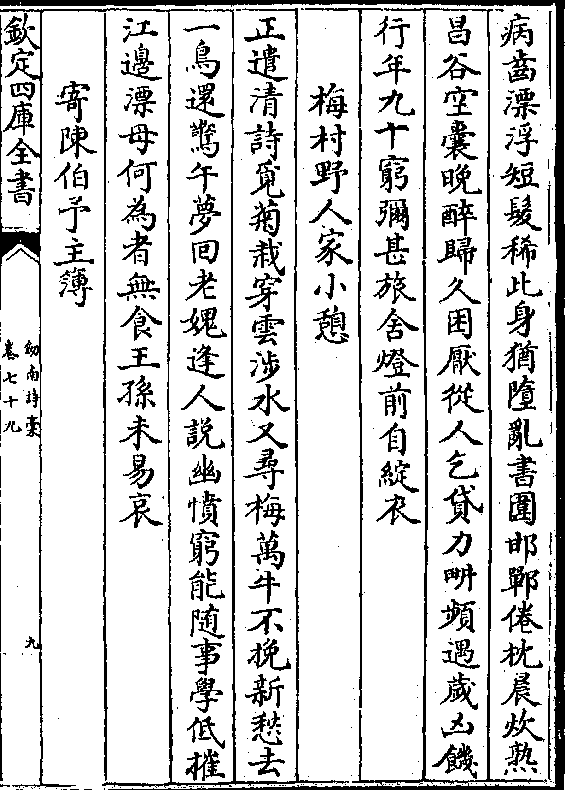 病齒漂浮短髮稀此身猶墮亂書圍邯鄲倦枕晨炊熟
昌谷空囊晚醉歸久困厭從人乞貸力畊頻遇歲凶饑
行年九十窮彌甚旅舍燈前自綻衣
梅村野人家小憩
正遣清詩覓菊栽穿雲涉水又尋梅萬牛不挽新愁去
一鳥還驚午夢回老媿逢人說幽憤窮能随事學低摧
江邊漂母何為者無食王孫未易哀
寄陳伯予主簿
欽定四庫全書
劒南詩稾
卷七十九
九